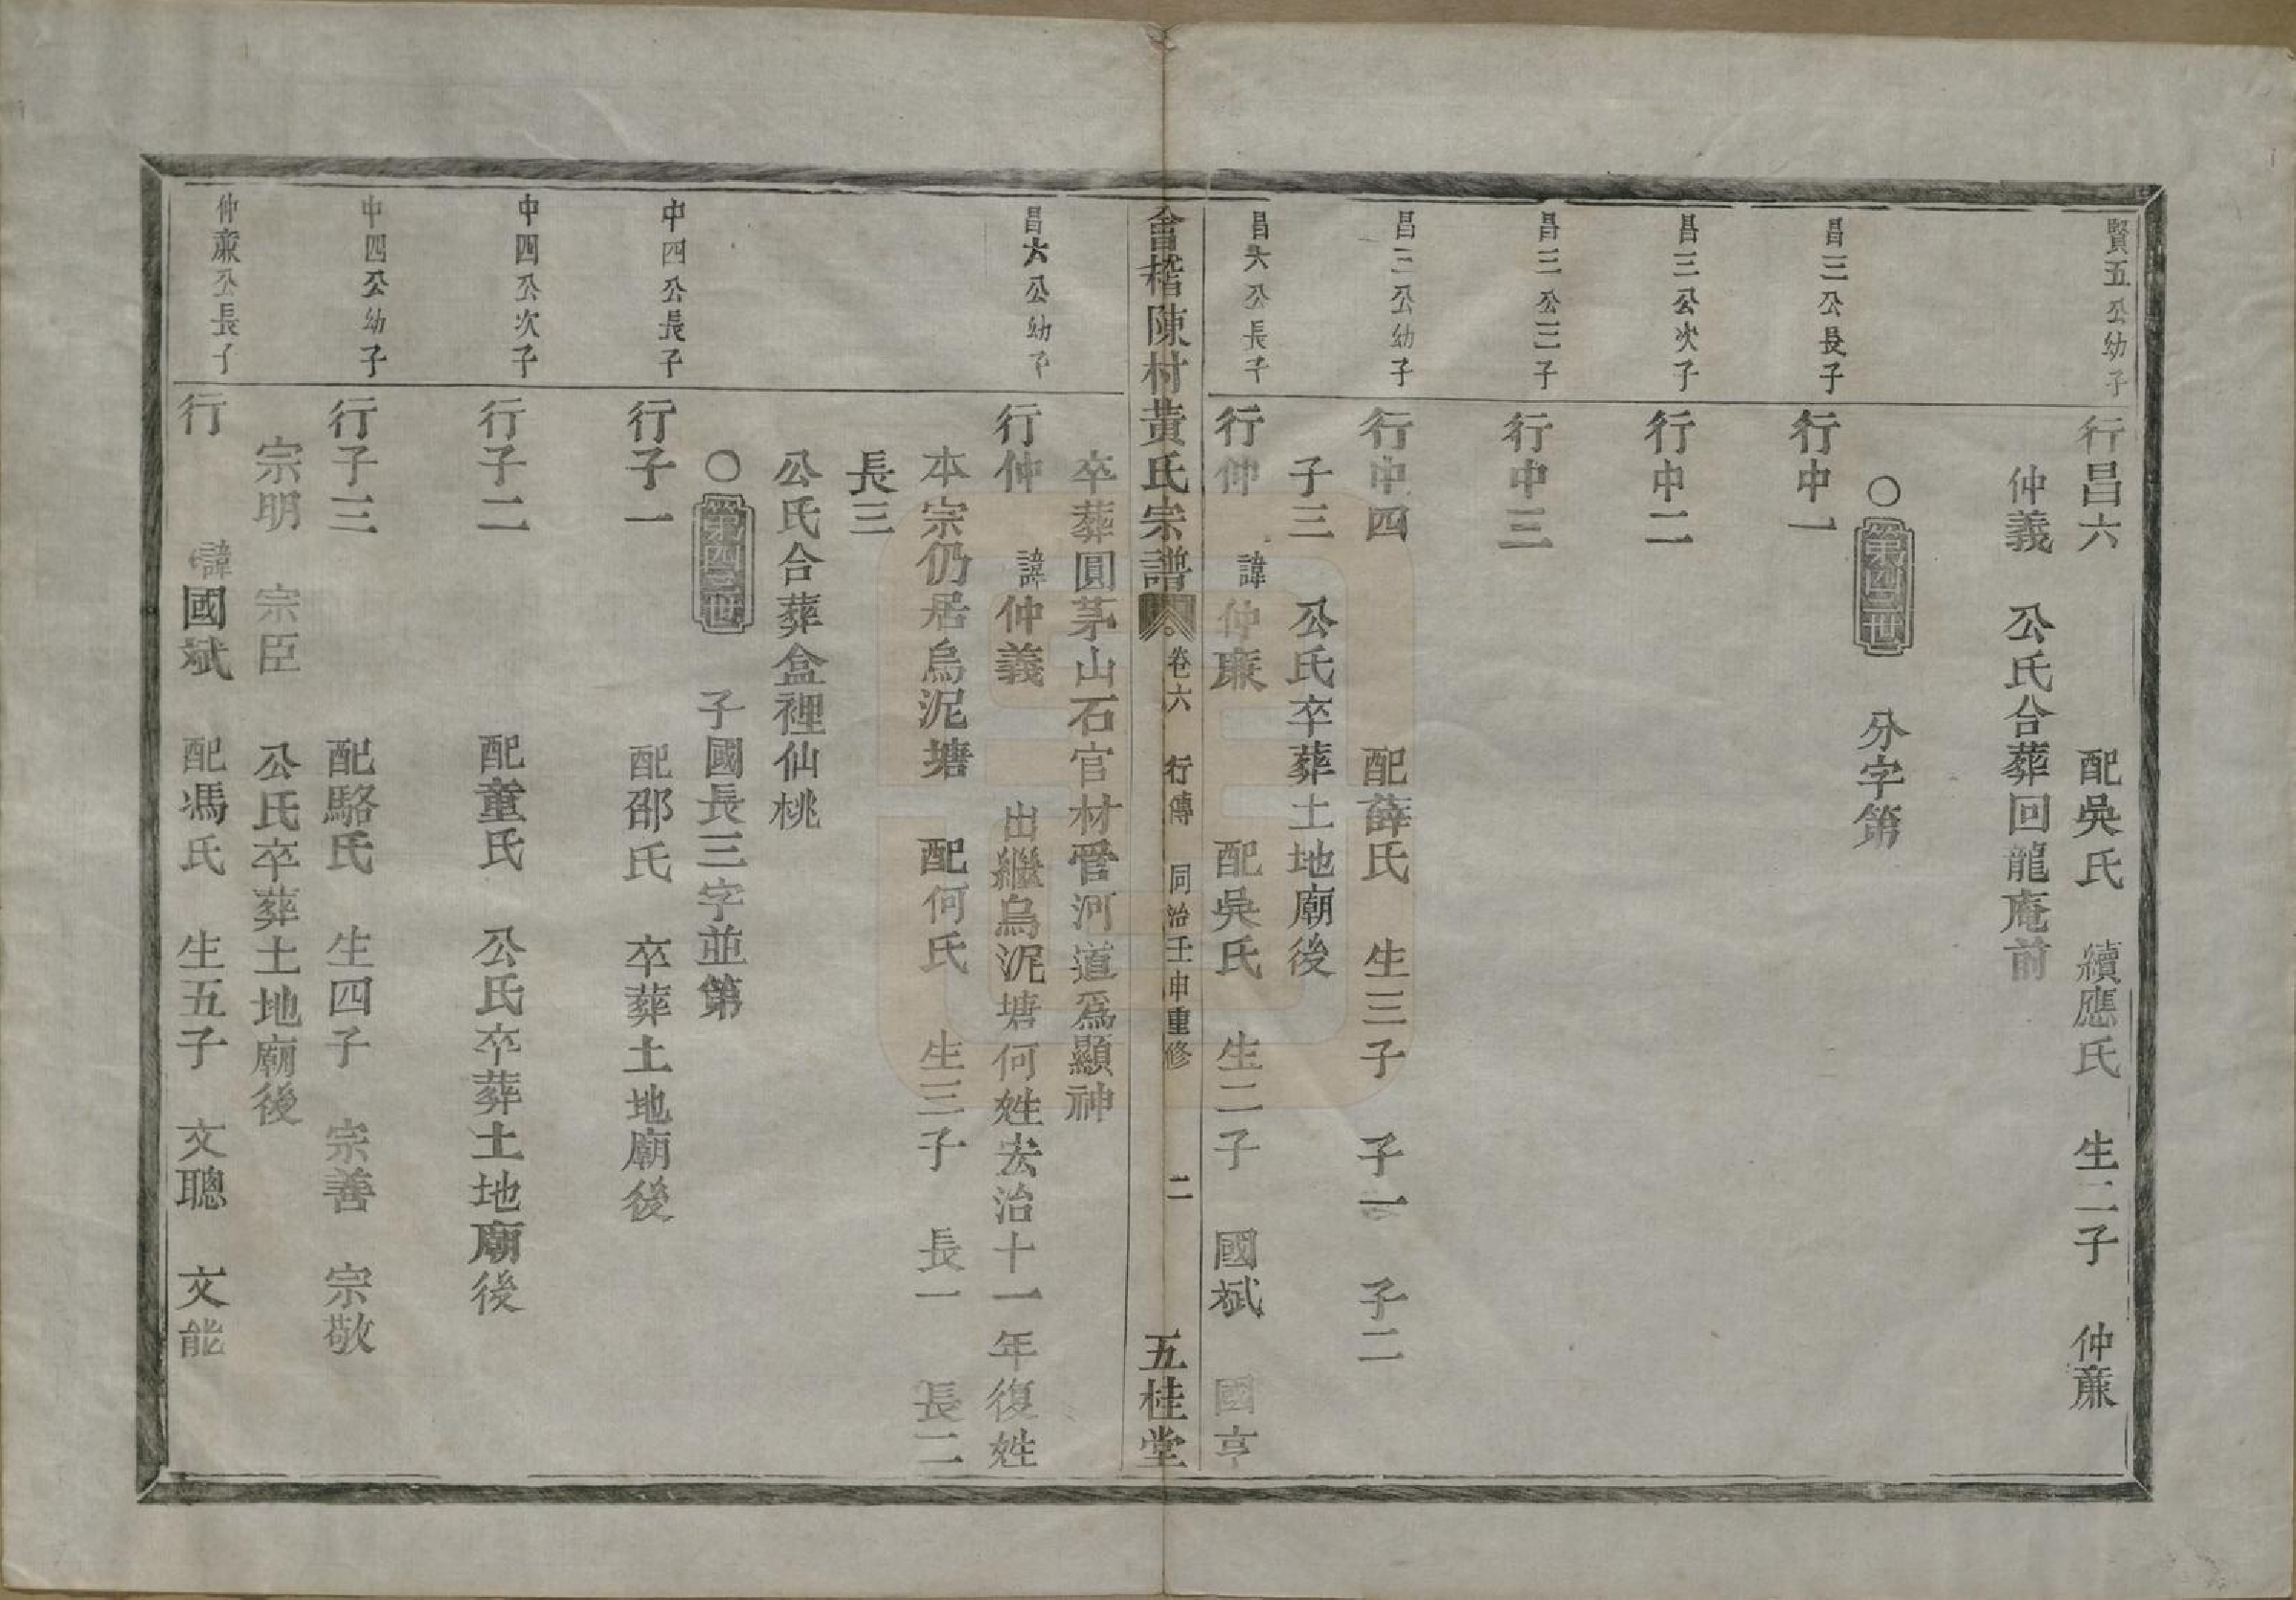 賢五公幼子
行昌六 配吳氏 續應氏 生二子 仲亷
仲義 公氏合葬回龍庵前
〇第四二世 分字第
昌三公長子
行中一
昌三公次子
行中二
昌三公三子
行中三
昌三公幼子
行中四 配薛氏 生三子 子一 子二
子三 公氏卒葬土地廟後
昌六公長子
行仲 諱仲亷 配吳氏 生二子 國斌 國亨
會稽陳村黃氏宗譜 卷六 行傳 同治壬申重修 二 五桂堂
卒葬圓茅山石官材管河道爲顯神
昌六公幼子
行仲 諱仲義 出繼烏泥塘何姓宏治十一年復姓
本宗仍居烏泥塘 配何氏 生三子 長一 長二
長三
公氏合葬盒裡仙桃
〇第四三世 子國長三字並第
中四公長子
行子一 配邵氏 卒葬土地廟後
中四公次子
行子二 配童氏 公氏卒葬土地廟後
中四公幼子
行子三 配駱氏 生四子 宗善 宗敬
宗明 宗臣 公氏卒葬土地廟後
仲亷公長子
行 諱國斌 配馮氏 生五子 文聰 文能